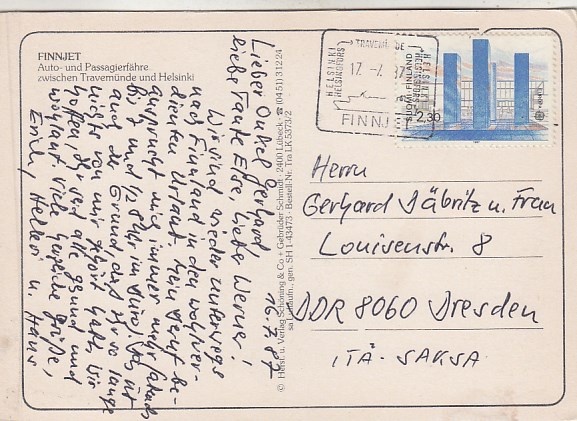 FINNJET
Auto- und Passagierfähre
zwischen Travemünde und Helsinki
Lieber Onkel Gerhard
liebe Tante Else, lieber Werner!
16.7.87
Wir sind wieder unterwegs
nach Finnland in den wohlver-
dienten Urlaub. Mein Beruf be-
ansprucht mich immer mehr
bis 7 und 1/2 8 Uhr im Büro), das ist
auch der Grund, daß Ihr so lange
nichts von mir gehört habt. Wir
hoffen, Ihr seid alle gesund und
wohlauf. Viele herzliche Grüße,
Emily, Helles u. Hans
© Herst. u. Verlag Schöning & Co + Gebrüder Schmidt · 2400 Lübeck · ☎ (0451) 31224
gen. SH 1-43473 · Bestell-Nr. Tra LK 5373/2
TRAVEMÜNDE
HELSINKI
HELSINGFORS
17. -7. 87
HELSINKI
HELSINGFORS
FINNJET
SUOMI FINLAND
2,30
Herrn
Gerhard Däbritz u. Frau
Louisenstr. 8
DDR 8060 Dresden
ITÄ-SAKSA